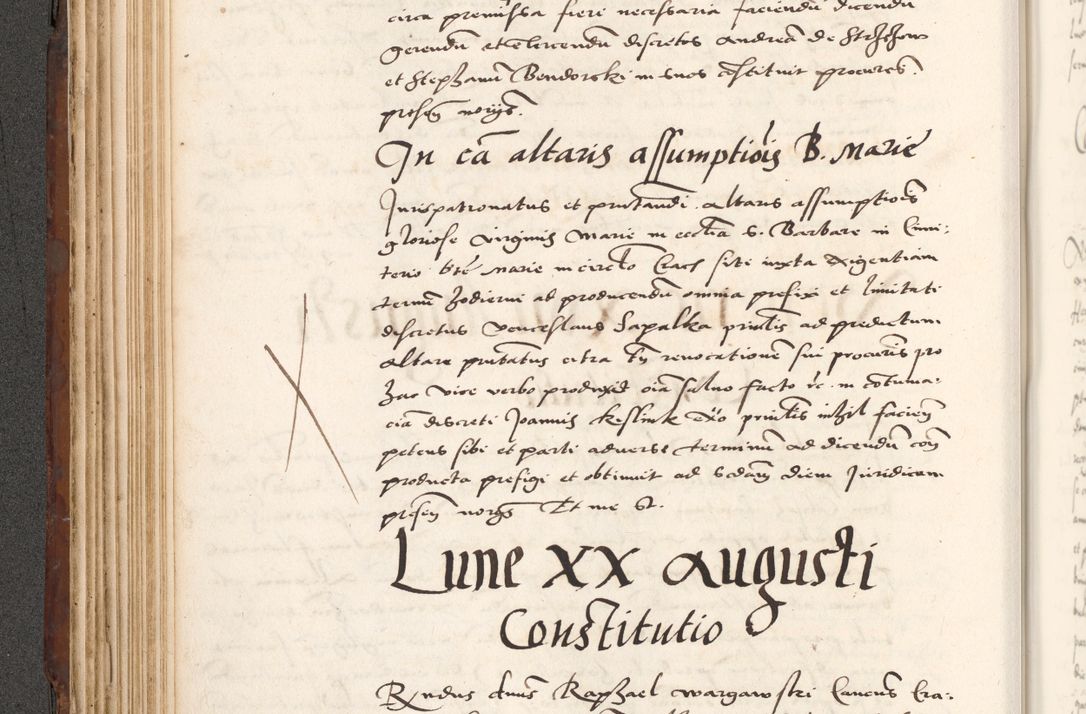 circa premissa fieri necessaria faciendū dicendū
gerendū et exercendū discretos Andreā de Strzszow
et Stephanū Bendorski in suos cōstituit procures.
presen̄ norijs.
In cā altaris assumptiōis B. Marie
Jurispatronatus et pntandi altaris assumptiōis
gloriose virginis Marie in ecclīa S. Barbare in Cimi-
terio btē Marie in circlō Crac̄ siti iuxta exigentiam
termī hodierni ad producendū omnia prefixi et limitati
discretus Venceslaus Sapalka prīnlis ad predictum
altare pntatus citra tn̄ revocationē sui procuris pro
hac vice verbo produxit oīa salvo facto rc. in cōtuma-
ciā discreti Joannis Keslink exō prīnlis nihil facien̄
petens sibi et parti adverse terminū ad dicendū con̄
producta prefigi et obtinuit ad scdam diem Juridicam
presen̄ noris Et me St.
Lune XX Augusti
Constitutio
Rndus dnus Raphael Wargawski Canonus Cra-